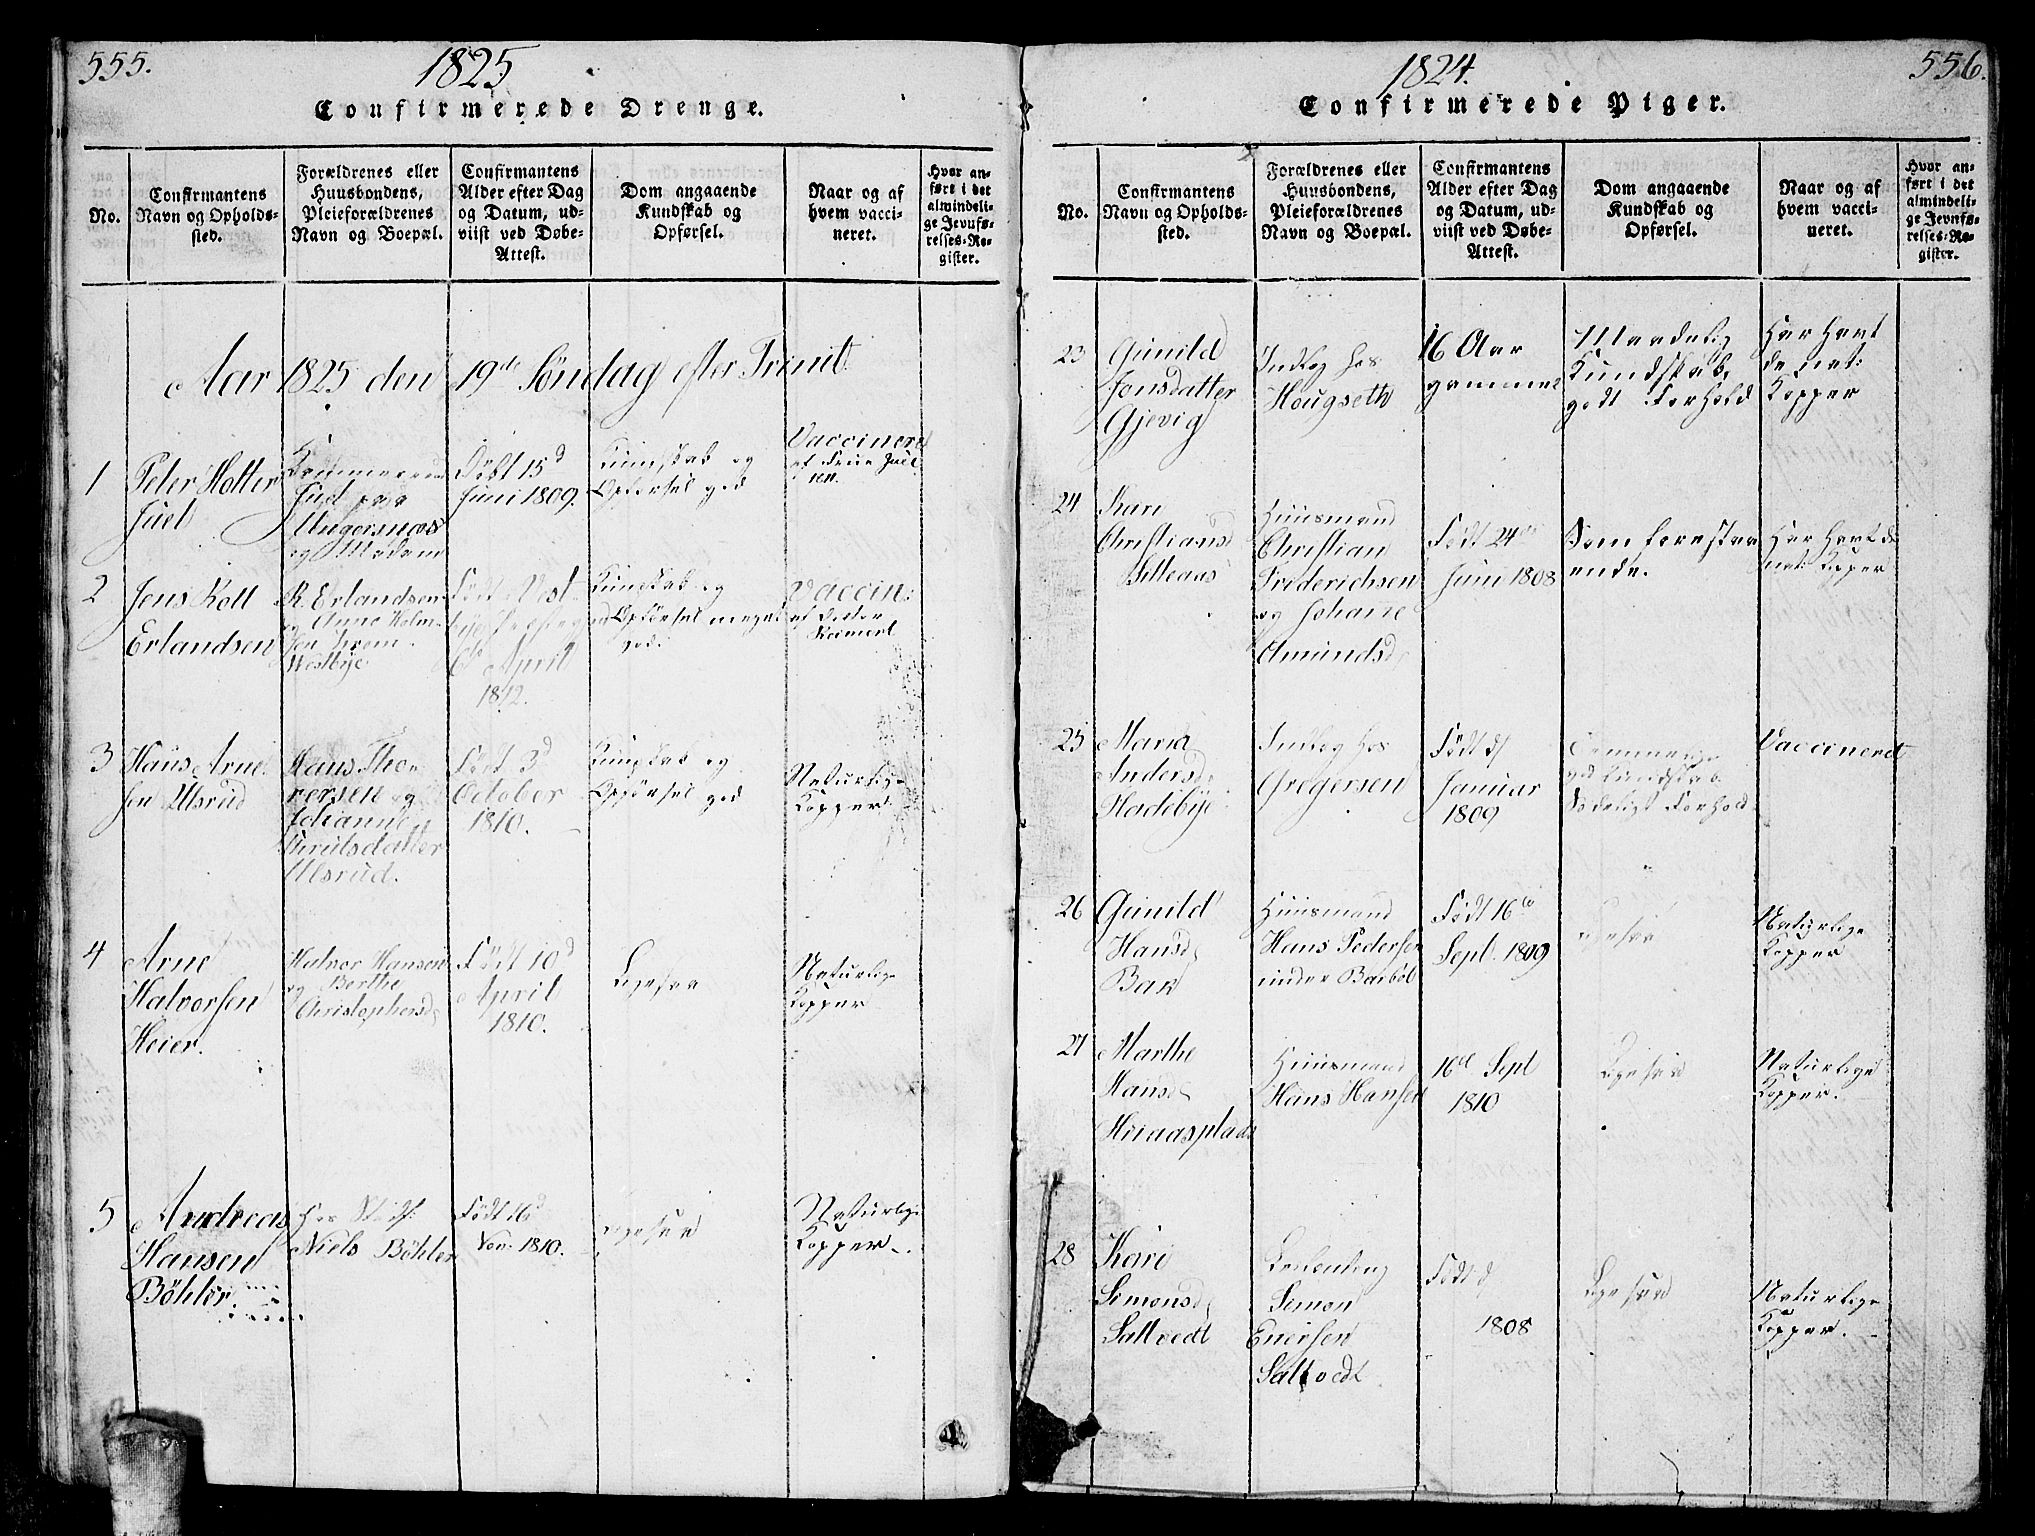 555.
1825
Confirmerede Drenge.
No.
Confirmantens
Navn og Opholds-
sted.
Forældrenes eller
Huusbondens,
Pleieforældrenes
Navn og Boepæl.
Confirmantens
Alder efter Dag
og Datum, ud-
viist ved Døbe-
Attest.
Dom angaaende
Kundskab og
Opførsel.
Naar og af
hvem vacci-
neret.
Hvor an-
ført i det
almindeli-
ge Jevnfø-
relses-Re-
gister.
Aar 1825 den 19de Søndag efter Trinit.
1
Peter Holter
Juel
Juel paa
Ungersnæs
og Madam
Født 15d
Juni 1809.
Kundskab og
Opførsel god
Vaccineret
af Frue Juel
2
Jens Kolt
Erlandsen
R. Erlandsen
og Anne Holm-
Westbye
6d April
1812.
Kundskab og
Opførsel meget
god.
Vaccin:
af
3
Hans Arne
sen Ulsrud
Hans Tho-
rersen og
Johanne
Truulsdatter
Ulsrud.
Født 3d
October
1810.
Kundskab og
Opførsel god
Naturlige
Kopper
4
Arne
Halvorsen
Heier.
Halvor Hansen
og Berthe
Christophersd
Født 10d
April
1810.
Ligesaa
Naturlige
Kopper
5
Andreas
Hansen
Bøhler.
hos
Niels Bøhler
Født 16d
Nov. 1810.
Ligesaa
Naturlige
Kopper.
1824.
556.
Confirmerede Piger.
No.
Confirmantens
Navn og Opholds-
sted.
Forældrenes eller
Huusbondens,
Pleieforældrenes
Navn og Boepæl.
Confirmantens
Alder efter Dag
og Datum, ud-
viist ved Døbe-
Attest.
Dom angaaende
Kundskab og
Opførsel.
Naar og af
hvem vacci-
neret.
Hvor an-
ført i det
almindeli-
ge Jevnfø-
relses-Re-
gister.
23
Gunild
Jonsdatter
Gjevig
Indlog hos
Hougseth
16 Aar
gammel
Maadelig
Kundskab,
godt Forhold
Har havt
de nat:
Kopper
24
Kari
Christiansd
Huusmand
Christian
Friderichsen
og Johane
Amundsd
Født 24de
Juni 1808
Som forestaa
ende.
Har havt de
nat: Kopper
25
Maria
Andersd
Hadebye
Indlog hos
Gregersen
Født d
Januar
1809
Kundskab
Forhold
Vaccineret
26
Gunild
Hansd
Bak
Huusmand
Hans Pedersen
under Barbøl
Født 16de
Sept. 1809
Ligesaa
Naturlige
Kopper
27
Marthe
Hansd
Huusmand
Hans Hansen
16de Sept
1810
Ligesaa
Naturlige
Kopper.
28
Kari
Simonsd
Saltvedt
Simon
Enersen
Saltvedt
Født d
1808
Ligesaa
Naturlige
Kopper.